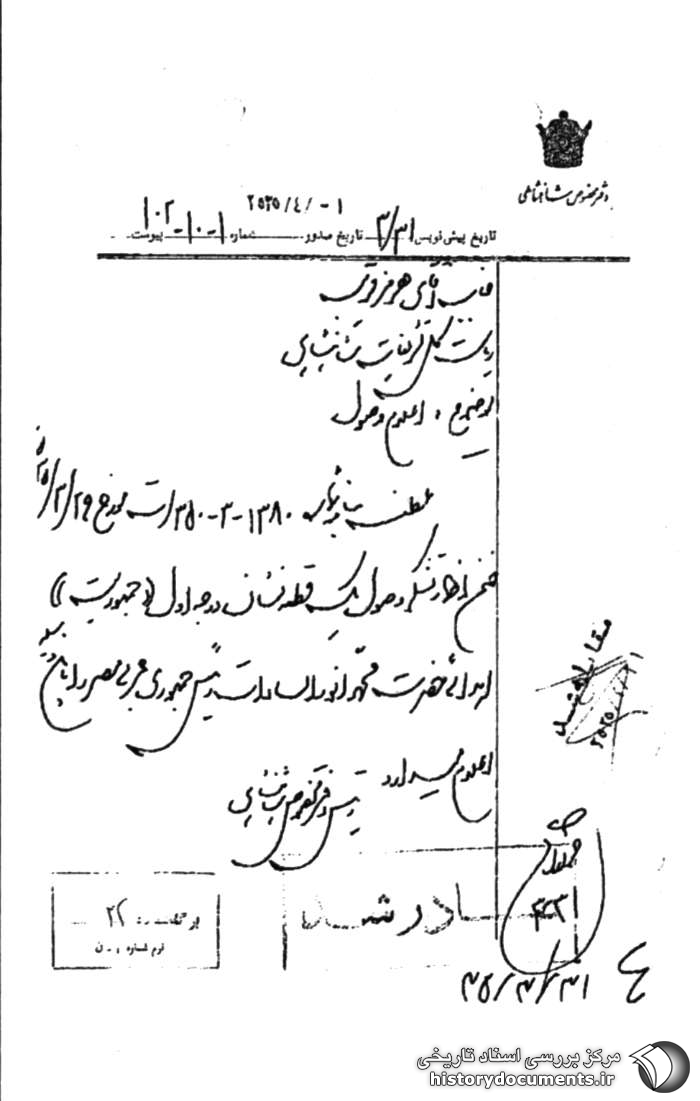 دفتر مخصوص شاهنشاهی
۲۵۳۵/۴/-۱
تاریخ پیش نویس ۳/۳۱ تاریخ صدور شماره ۱-۱۰-۱۰۲ پیوست
جناب آقای هرمز قریب
ریاست کل تشریفات شاهنشاهی
موضوع: اعلام وصول
عطف به نامه شماره ۱۳۸۰-۳-۳۵۰/ت مورخ ۲۹/۳/۲۵۳۵
ضمن اظهار تشکر وصول یک قطعه نشان درجه اول ((جمهوریت))
اهدائی حضرت محمد انورالسادات رئیس جمهوری عربی مصر را بدینوسیله
اعلام میدارد
رئیس دفتر مخصوص شاهنشاهی
مقابله شد
۲۵۳۵
صادر شد
۳/۳۱
۳۵/۳/۳۱
۴
فرم شماره
مرکز بررسی اسناد تاریخی
historydocuments.ir